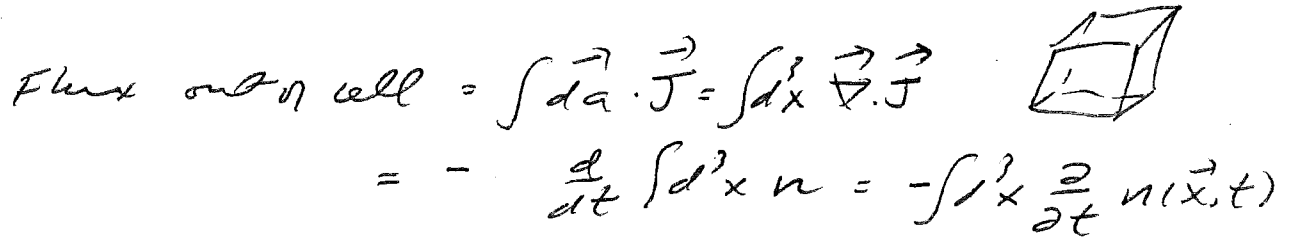 Flux out of cell = ∫d⃗a · J⃗ = ∫d³x ∇⃗ · J⃗
= - d/dt ∫d³x n = -∫d³x ∂/∂t n(x⃗,t)